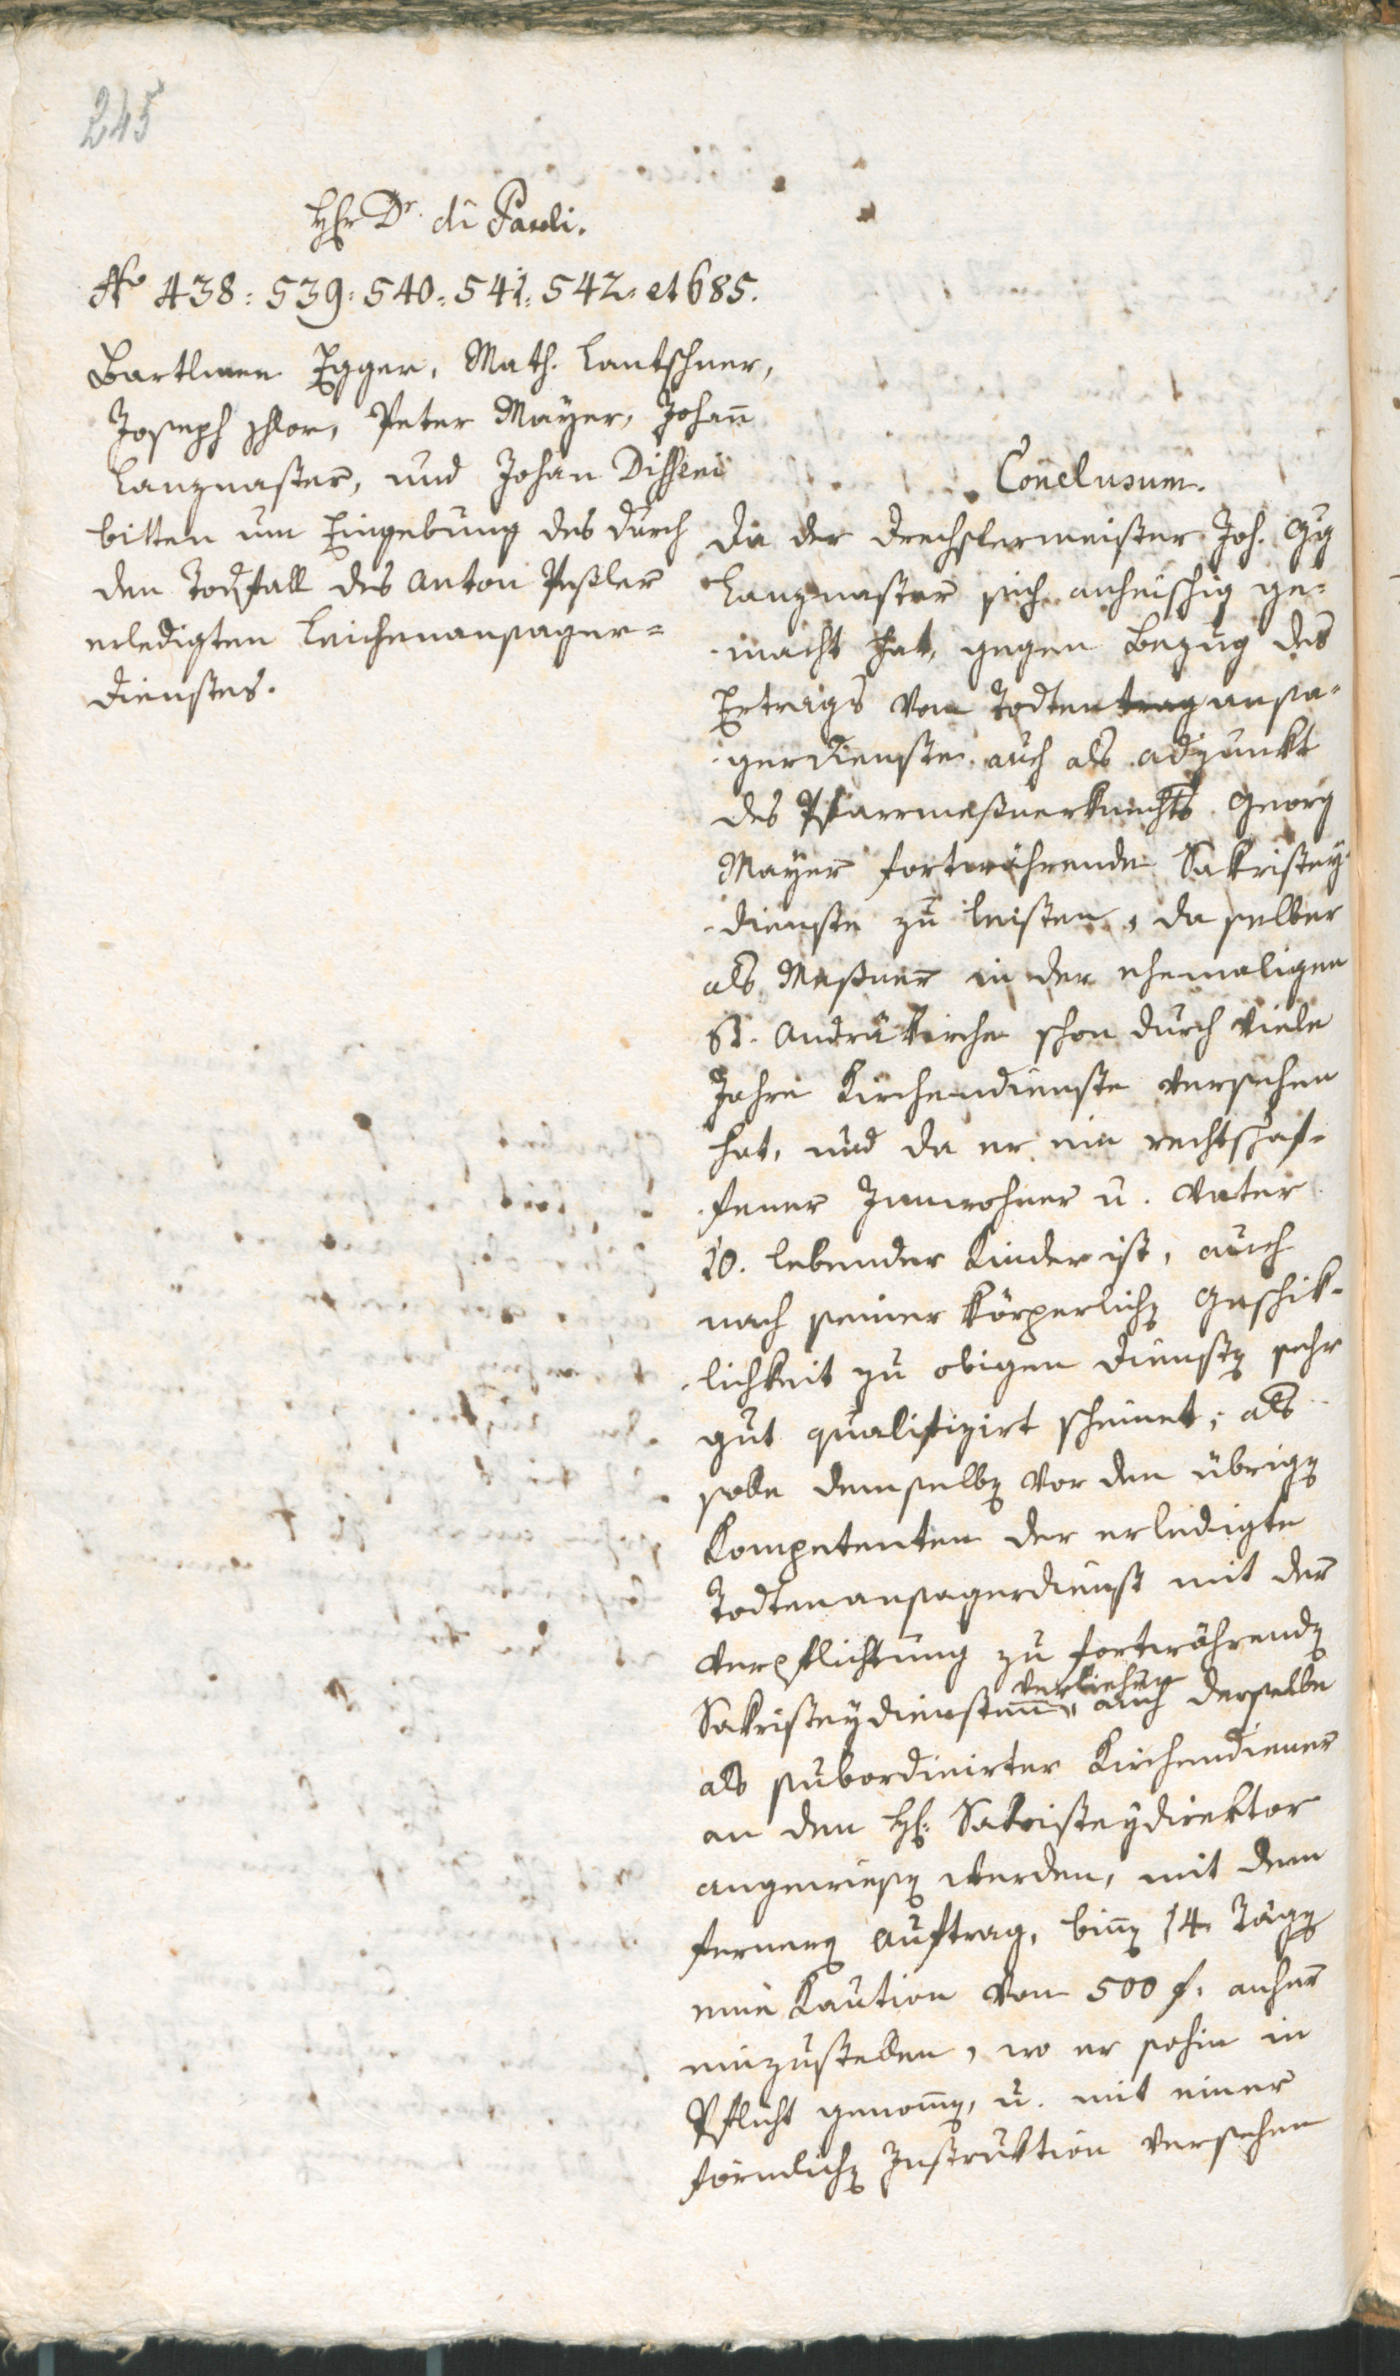 245
H&hr Dr. di Pauli.
No 438: 539: 540: 541: 542: et 685.
Bartlmee Egger, Math. Lantschner,
Joseph Flor, Peter Mayer, Johann
Lanznaster, und Johan Disseni
bitten um Eingebung des durch
den Todfall des Anton Peßler
erledigten Leichenansager=
dienstes.
Conclusum.
Da der Drechslermeister Joh. Gg
Lanznaster sich anheischig ge=
macht hat, gegen Bezug des
Ertrags vom Todtentrag ansa=
gerdienste auch als Adjunkt
des Pfarrmeßnerknechts Georg
Mayer fortwährende Sakristey
dienste zu leisten, da selber
als Meßner in der ehemaligen
St. Andräkirche schon durch viele
Jahre Kirchendienste versehen
hat, und da er ein rechtschaf=
fener Innwohner u. Vater
10. lebender Kinder ist, auch
nach seiner körperlichen Geschik=
lichkeit zu obigen Diensten sehr
gut qualifizirt scheinet; als
solle demselben vor den übrigen
Kompetenten der erledigte
Todtenansagerdienst mit der
Verpflichtung zu fortwährenden
verliehen
Sakristeydiensten, auch derselbe
als subordinirter Kirchendiener
an den H: Sakristeydirektor
angewiesen werden, mit dem
fernern Auftrag, binnen 14. Tägen
eine Kaution von 500 f. anher
einzustellen, wo er sohin in
Pflicht genommen, u. mit einer
förmlichen Instruktion versehen